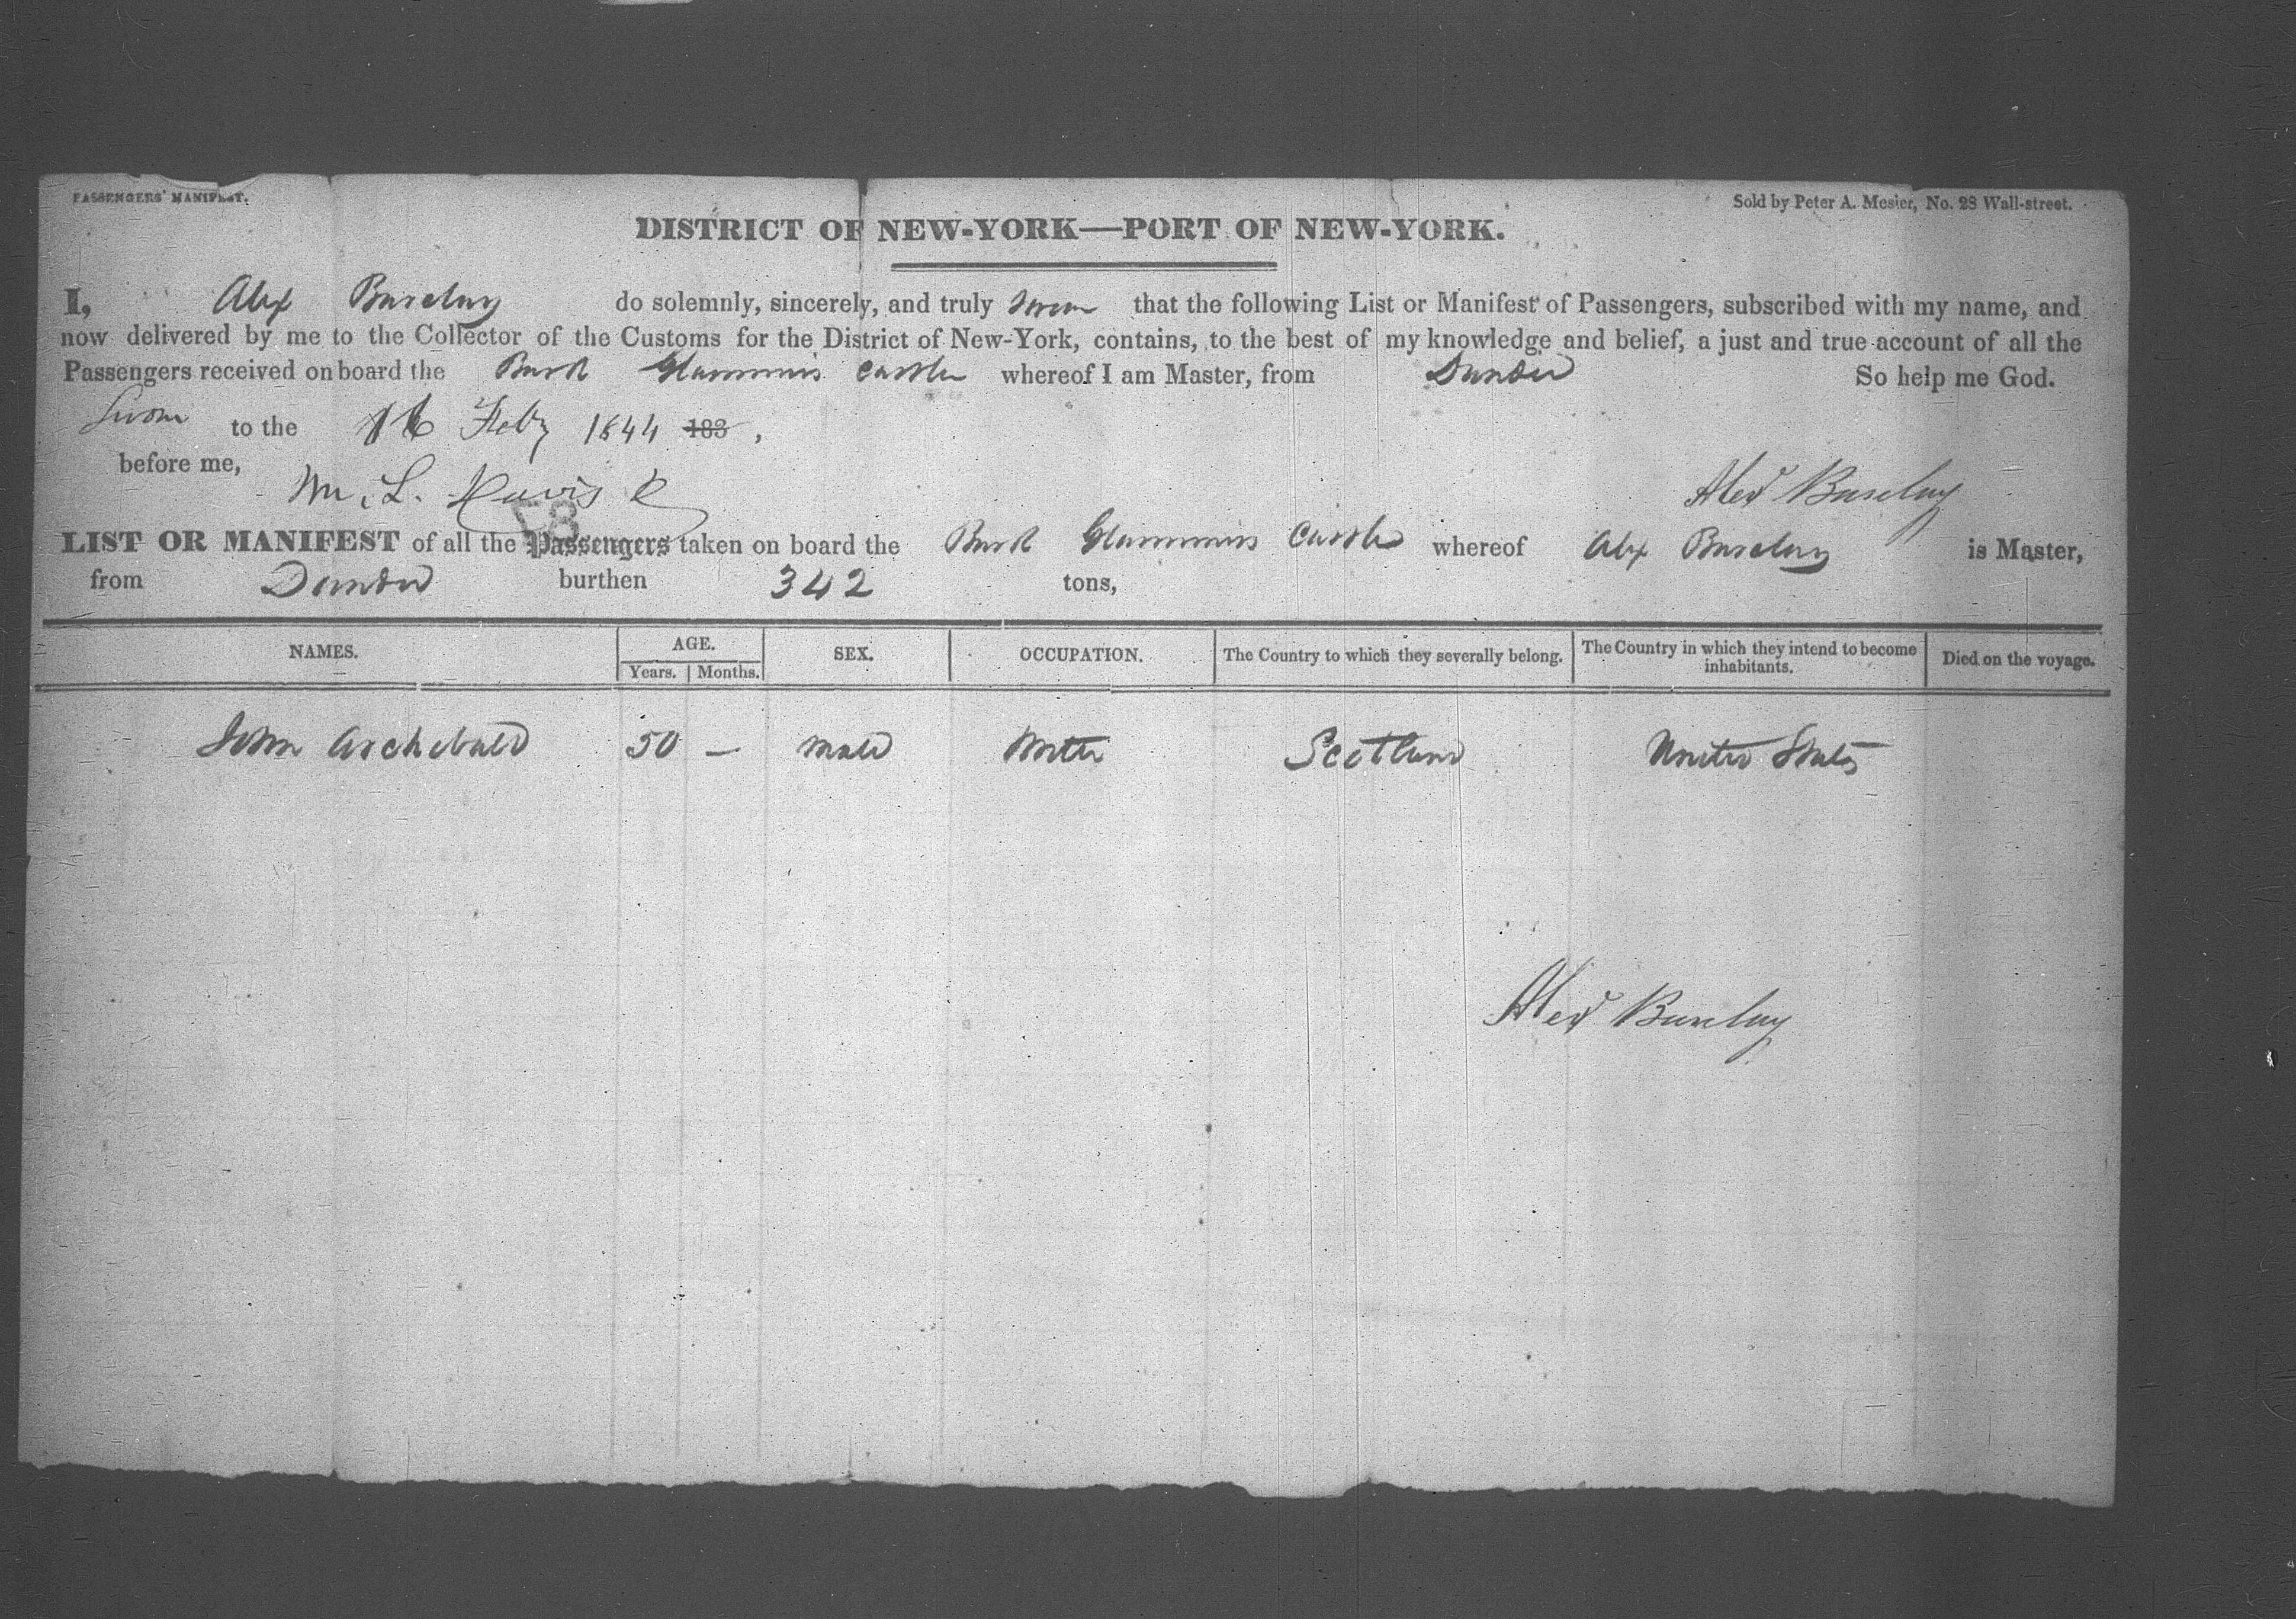 PASSENGERS' MANIFEST.
Sold by Peter A. Mesier, No. 28 Wall-street.
DISTRICT OF NEW-YORK—PORT OF NEW-YORK.
I, Alex Barclay do solemnly, sincerely, and truly swear that the following List or Manifest of Passengers, subscribed with my name, and
now delivered by me to the Collector of the Customs for the District of New-York, contains, to the best of my knowledge and belief, a just and true account of all the
Passengers received on board the Bark Glammis Castle whereof I am Master, from Dundee So help me God.
Sworn to the 16 Feby 1844 183 ,
before me,
M. L. Davis
Alexr Barclay
78
LIST OR MANIFEST of all the Passengers taken on board the Bark Glammis Castle whereof Alex Barclay is Master,
from Dundee burthen 342 tons,
NAMES. AGE. SEX. OCCUPATION. The Country to which they severally belong. The Country in which they intend to become inhabitants. Died on the voyage.
Years. Months.
John Archebald 50 — Male Scotland United States
Alexr Barclay